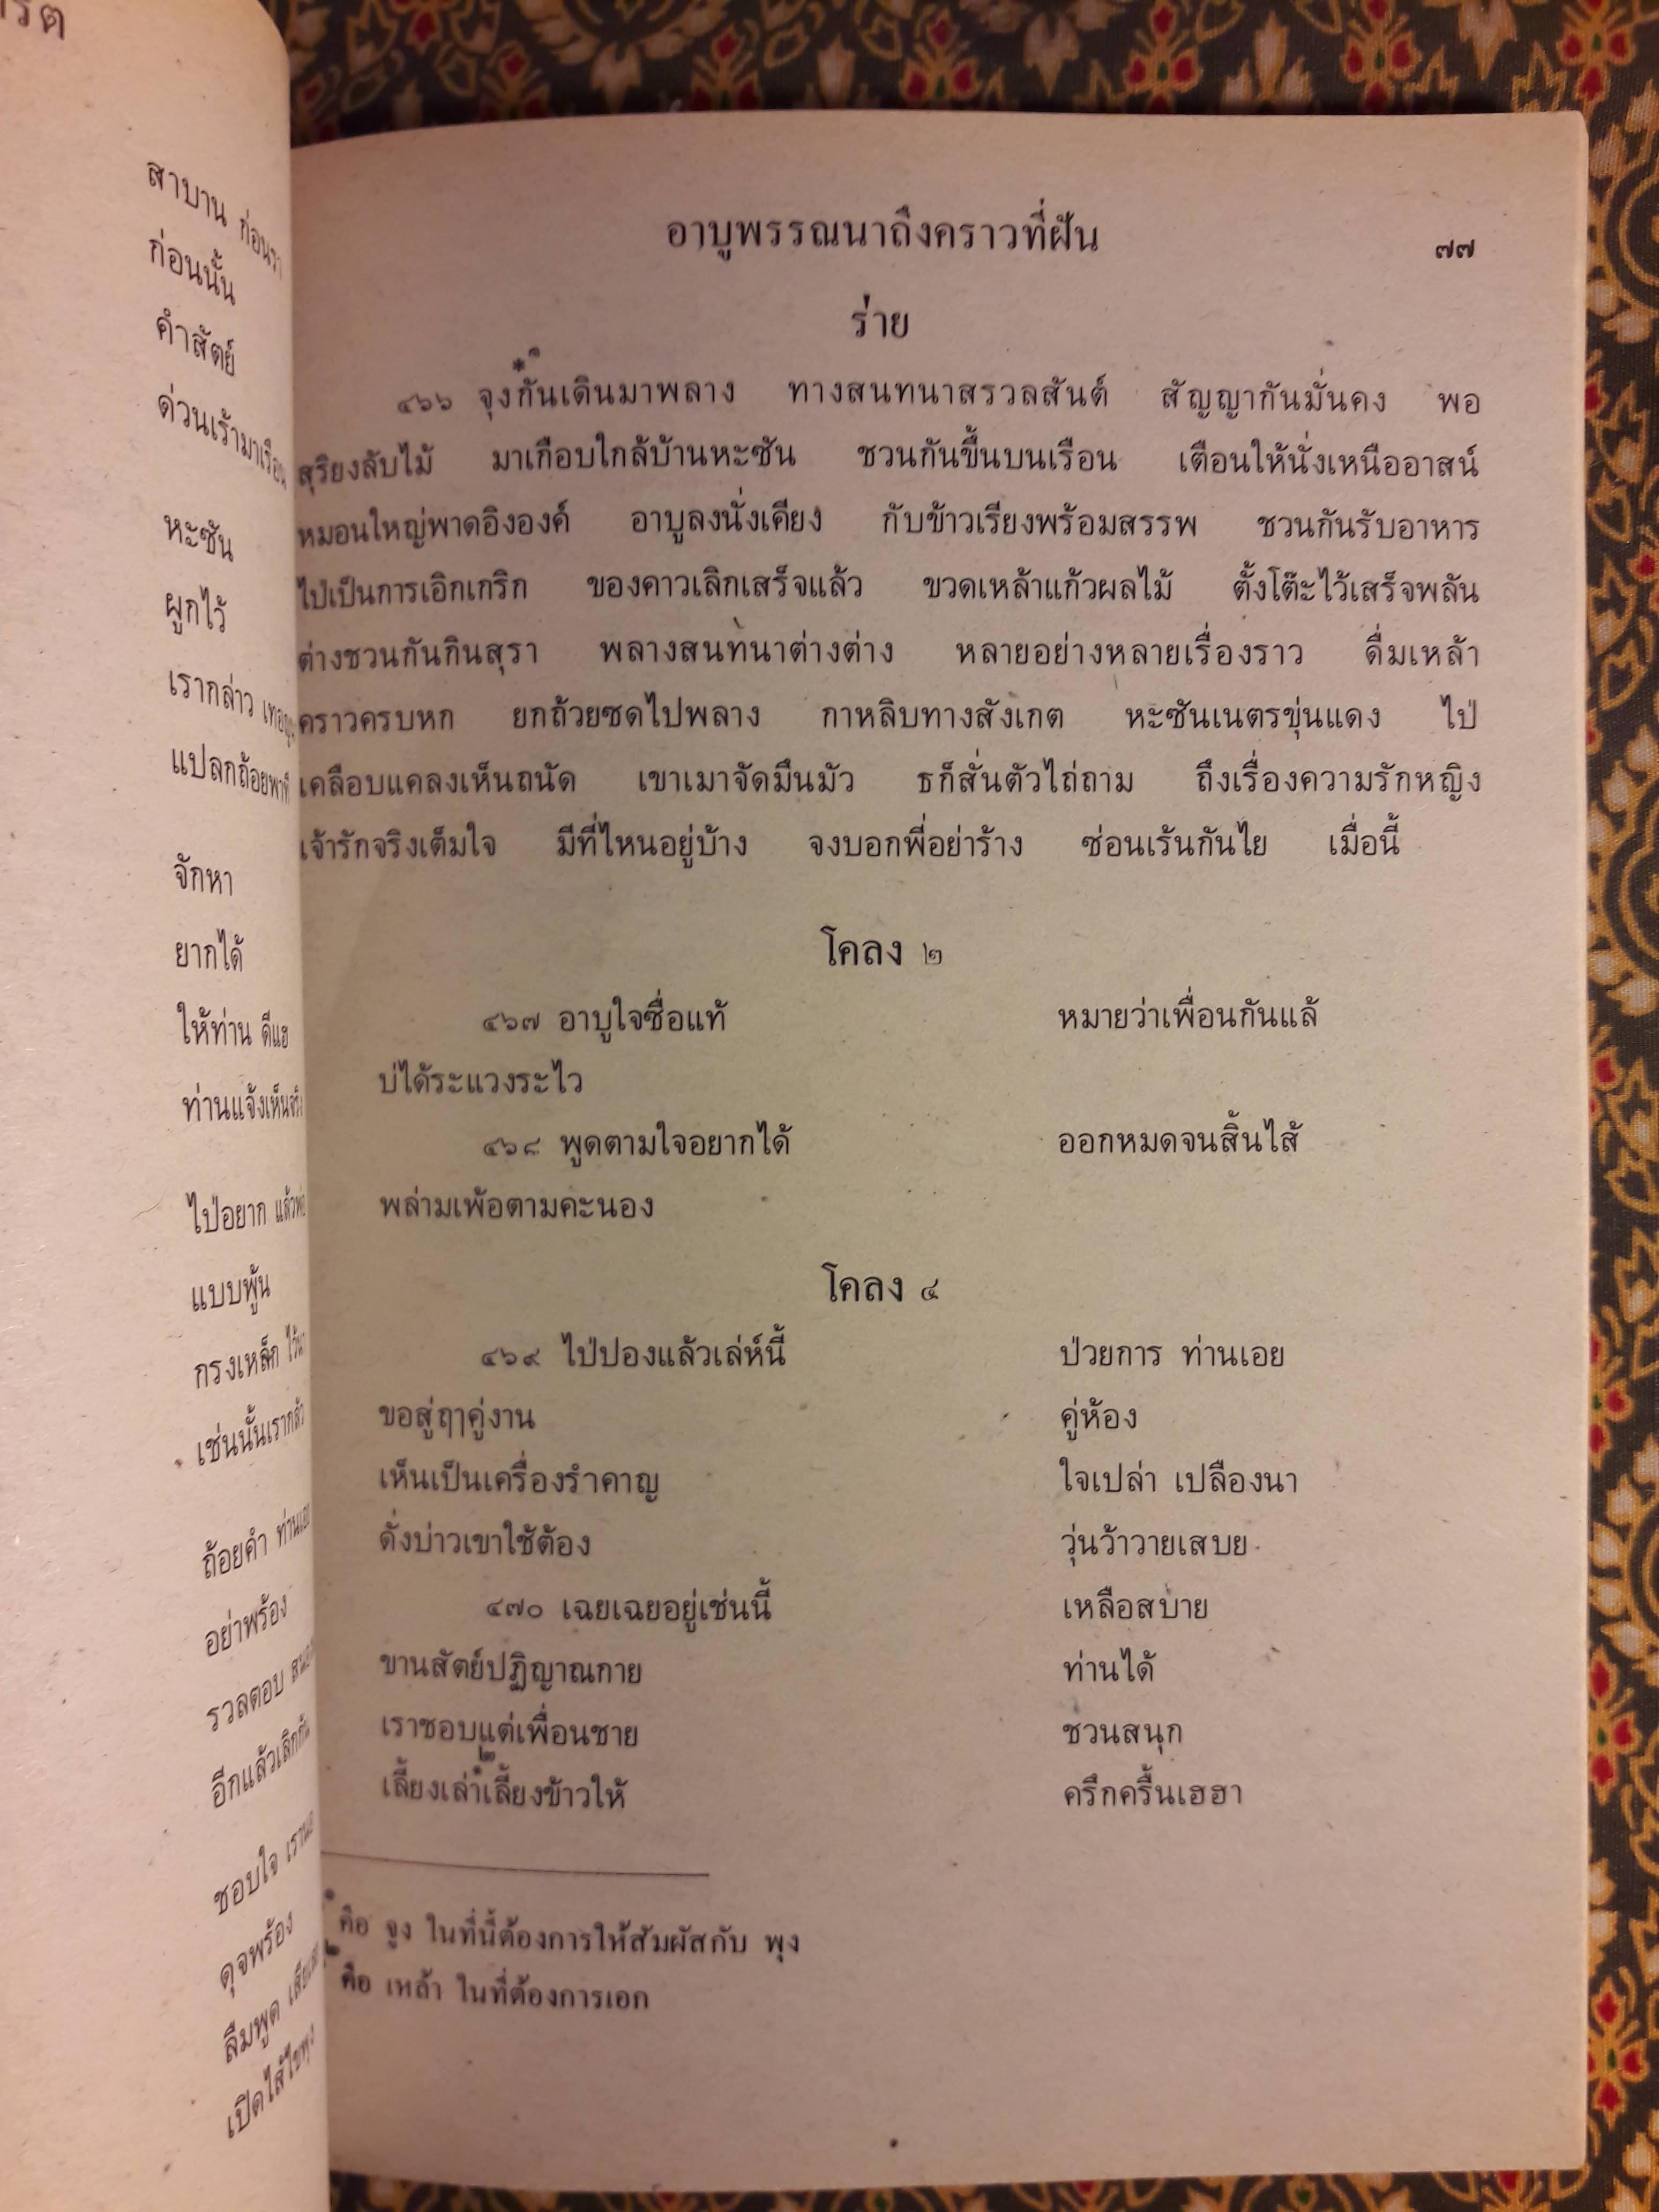 สาบาน
ก่อนนั้น
คำสัตย์
ด่วนเร้ามาเรือน
หะซัน
ผูกไว้
เรากล่าว
แปลกถ้อยพาที
จักหา
ยากได้
ให้ท่าน ดีแฮ
ท่านแจ้งเห็นจริง
ไป่อยาก
แบบพู้น
กรงเหล็ก
เช่นนั้นเรากลัว
ถ้อยคำ ท่านเอย
อย่าพร้อง
รวลตอบ
อีกแล้วเลิกกัน
ชอบใจ เรานอ
ดุจพร้อง
ลืมพูด
เปิดไส้ไขพุง
อาบูพรรณนาถึงคราวที่ฝัน ๗๗
ร่าย
๔๖๖ จุง๑กันเดินมาพลาง ทางสนทนาสรวลสันต์ สัญญากันมั่นคง พอ
สุริยงลับไม้ มาเกือบใกล้บ้านหะซัน ชวนกันขึ้นบนเรือน เตือนให้นั่งเหนืออาสน์
หมอนใหญ่พาดอิงองค์ อาบูลงนั่งเคียง กับข้าวเรียงพร้อมสรรพ ชวนกันรับอาหาร
ไป่เป็นการเอิกเกริก ของคาวเลิกเสร็จแล้ว ขวดเหล้าแก้วผลไม้ ตั้งโต๊ะไว้เสร็จพลัน
ต่างชวนกันกินสุรา พลางสนทนาต่างต่าง หลายอย่างหลายเรื่องราว ดื่มเหล้า
คราวครบหก ยกถ้วยซดไปพลาง กาหลิบทางสังเกต หะซันเนตรขุ่นแดง ไป่
เคลือบแคลงเห็นถนัด เขาเมาจัดมึนมัว ธก็สั่นตัวไถ่ถาม ถึงเรื่องความรักหญิง
เจ้ารักจริงเต็มใจ มีที่ไหนอยู่บ้าง จงบอกพี่อย่าร้าง ซ่อนเร้นกันไย เมื่อนี้
โคลง ๒
๔๖๗ อาบูใจซื่อแท้ หมายว่าเพื่อนกันแล้
บ่ได้ระแวงระไว
๔๖๘ พูดตามใจอยากได้ ออกหมดจนสิ้นไส้
พล่ามเพ้อตามคะนอง
โคลง ๔
๔๖๙ ไป่ปองแล้วเล่ห์นี้ ป่วยการ ท่านเอย
ขอสู่ฤๅคู่งาน คู่ห้อง
เห็นเป็นเครื่องรำคาญ ใจเปล่า เปลืองนา
ดั่งบ่าวเขาใช้ต้อง วุ่นว้าวายเสบย
๔๗๐ เฉยเฉยอยู่เช่นนี้ เหลือสบาย
ขานสัตย์ปฏิญาณกาย ท่านได้
เราชอบแต่เพื่อนชาย ชวนสนุก
เลี้ยงเล่า๒เลี้ยงข้าวให้ ครึกครื้นเฮฮา
๑ คือ จูง ในที่นี้ต้องการให้สัมผัสกับ พุง
๒ คือ เหล้า ในที่ต้องการเอก